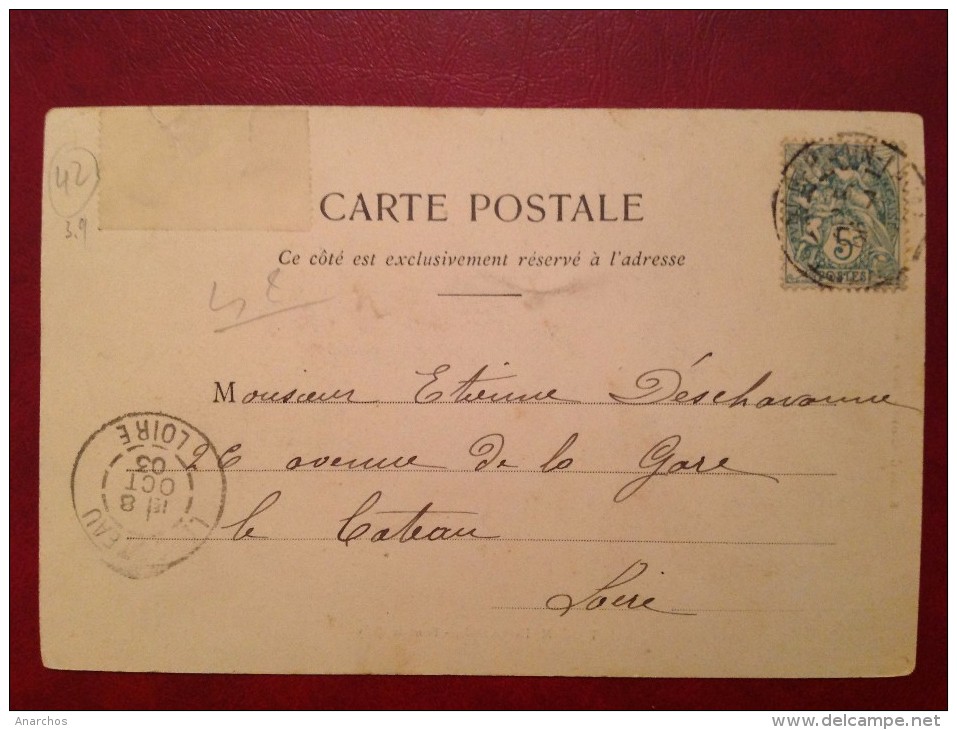 42
3.9
CARTE POSTALE
Ce côté est exclusivement réservé à l'adresse
5
POSTES
Monsieur Etienne Déschavanne
26 avenue de la Gare
le Coteau
Loire
LOIRE
03
OCT
8
EAU
Anarchos
www.delcampe.net